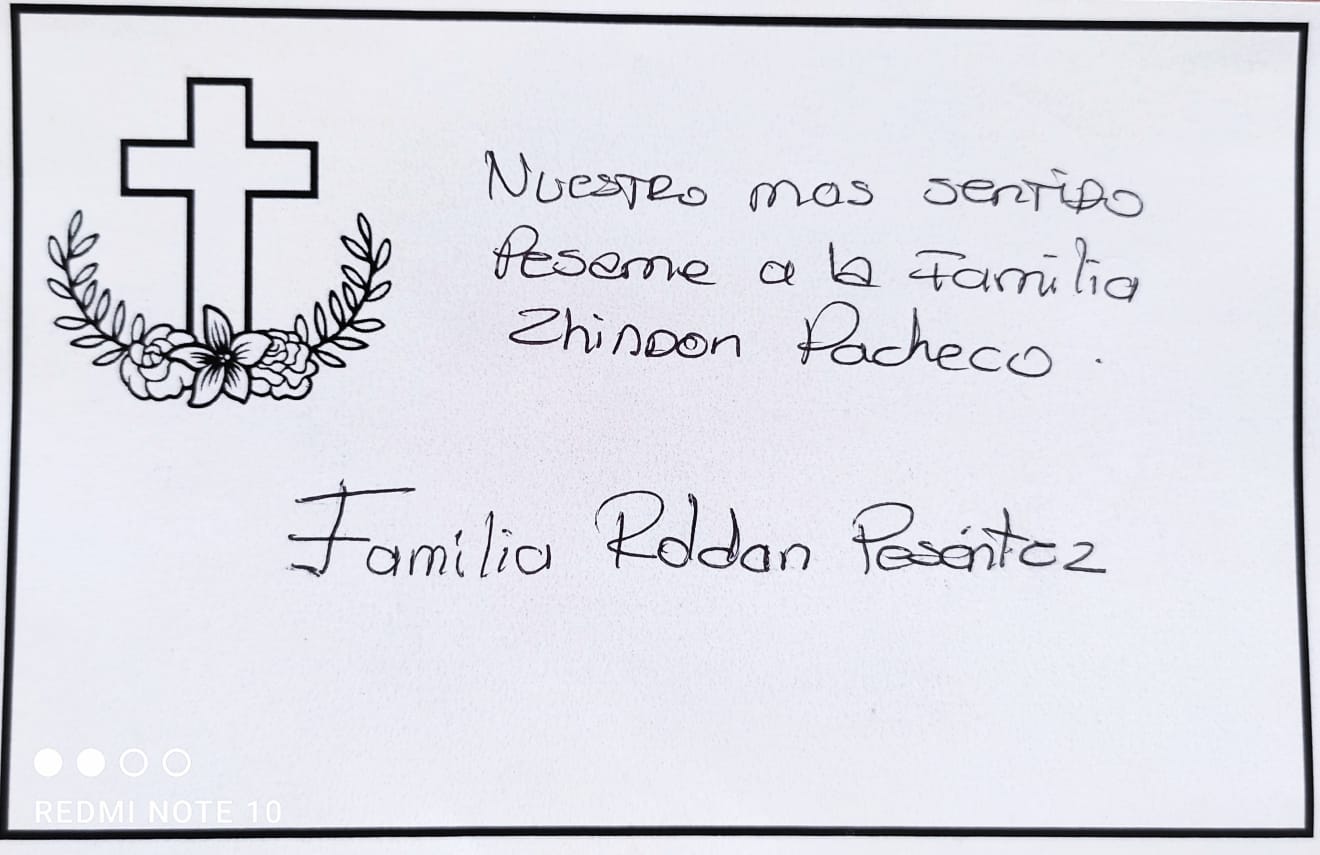 Nuestro mas sentido
Pesame a la Familia
Zhindon Pacheco.
Familia Roldan Pesántez
REDMI NOTE 10